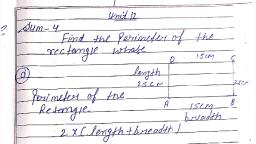 Unit 12
Sum-4
Find the Perimeter of the
rectangle whose
D 15cm C
length
25cm 25cm
@ Perimeter of the
A 15cm B
Retangle breadth
2 x (length + breadth)